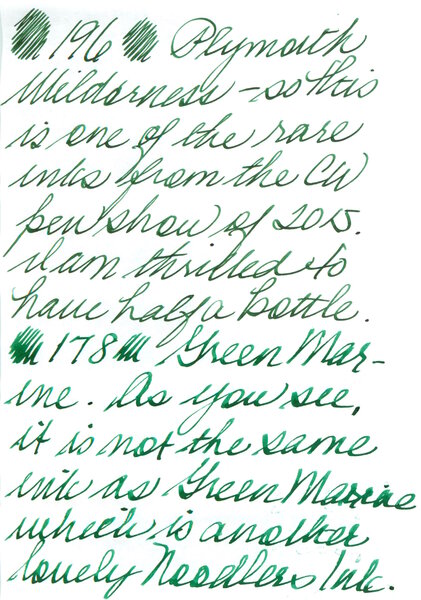 196 Plymouth
Wilderness - so this
is one of the rare
inks from the CW
pen show of 2015.
I am thrilled to
have half a bottle.
178 Green Mar-
ine. As you see,
it is not the same
ink as Green Marine
which is another
lovely Noodlers Ink.